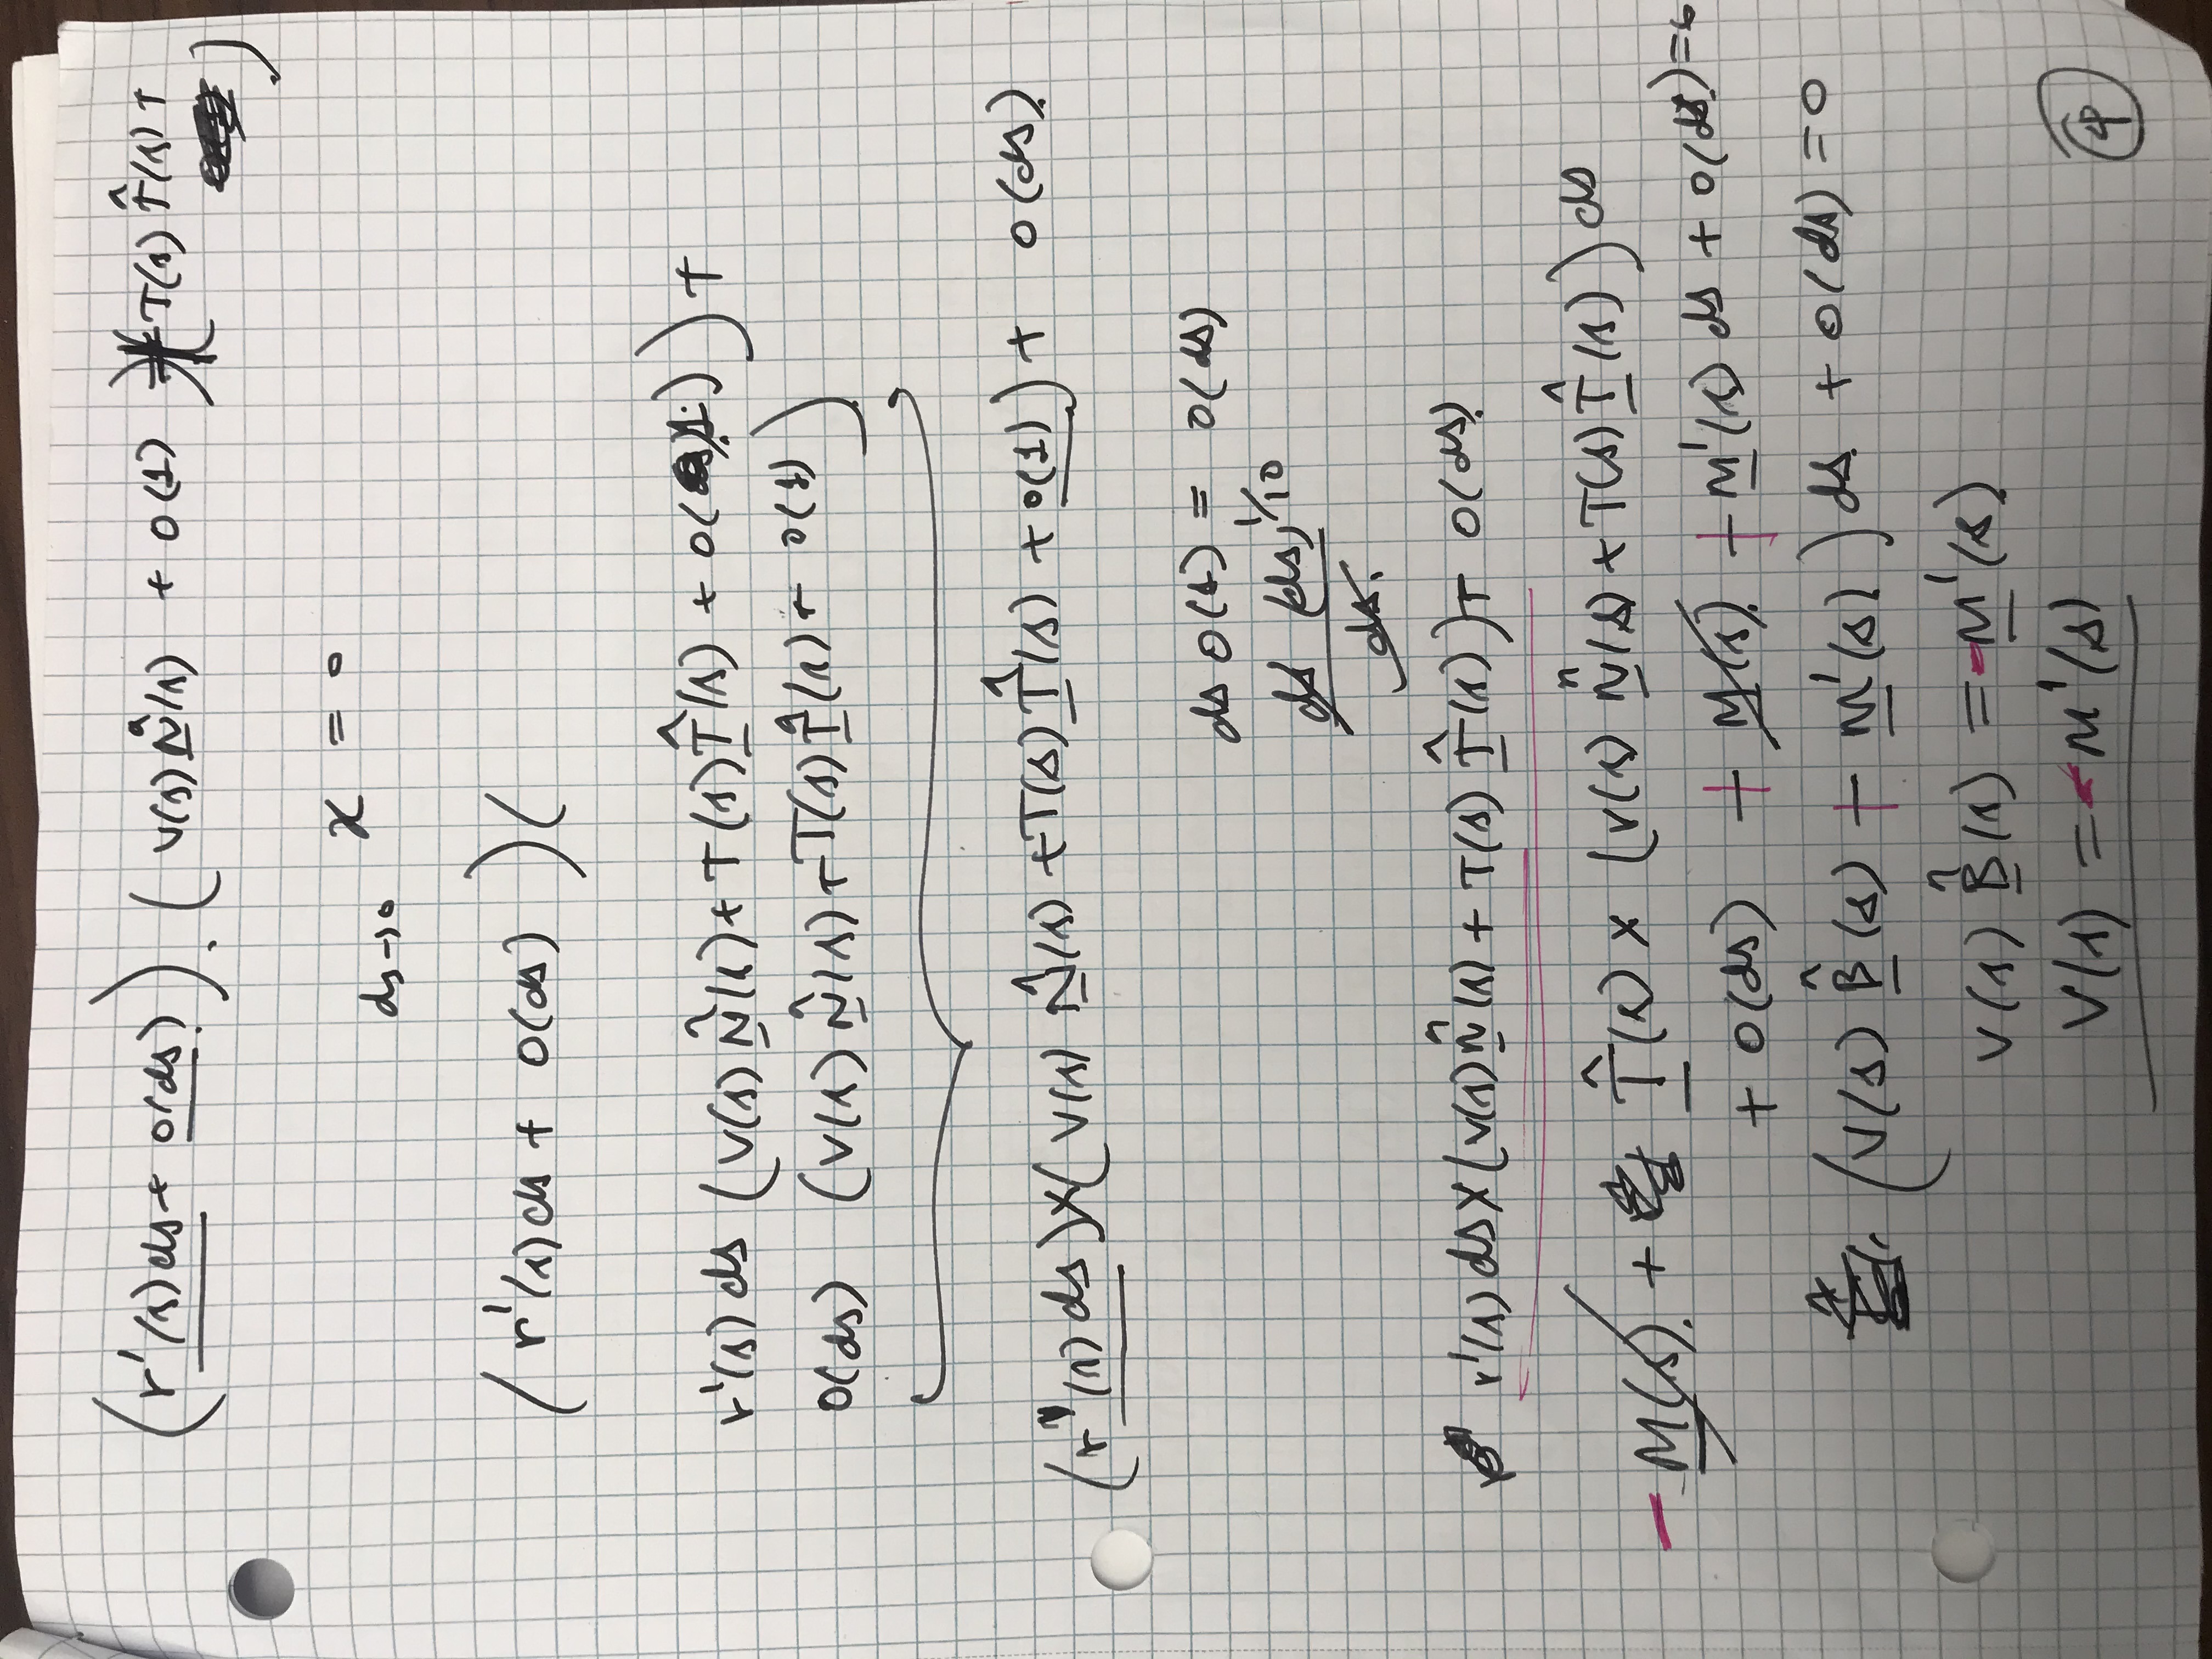 (r'(s)ds + o(ds)) . (V(s) N̂(s) + o(1) + T(s) T̂(s) + )
x = 0
ds→0
(r'(s)ds + o(ds))(
r'(s) ds (V(s) N̂(s) + T(s) T̂(s) + o(1)) +
o(ds) (V(s) N̂(s) + T(s) T̂(s) + o(1))
(r'(s) ds) × (V(s) N̂(s) + T(s) T̂(s) + o(1)) + o(ds)
ds o(1) = o(ds)
ds (ds)^1/10
ds.
r'(s) ds × (V(s) N̂(s) + T(s) T̂(s)) + o(ds)
- M(s) + T̂(s) × (V(s) N̂(s) + T(s) T̂(s)) ds
+ o(ds) + M(s) + M'(s) ds + o(ds) = 0
(V(s) B̂(s) + M'(s)) ds + o(ds) = 0
V(s) B̂(s) = - M'(s)
V(s) = - M'(s)
4